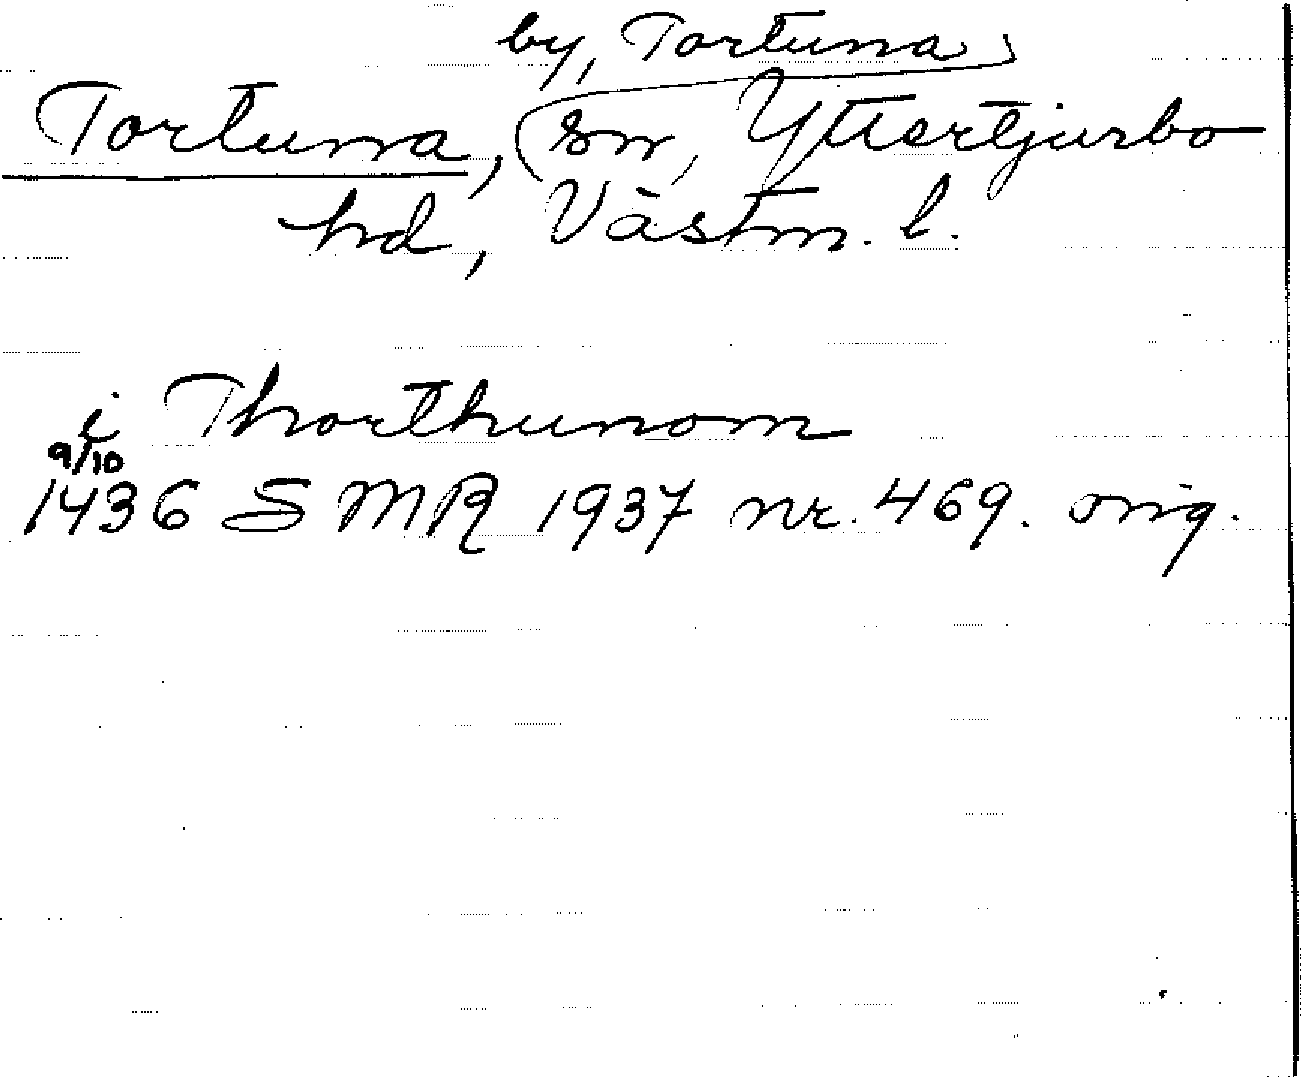 by, Tortuna
Tortuna, sn, Yttertjurbo
hd, Västm. l.
i Thorthunom
9/10
1436 SMR 1937 nr. 469. orig.